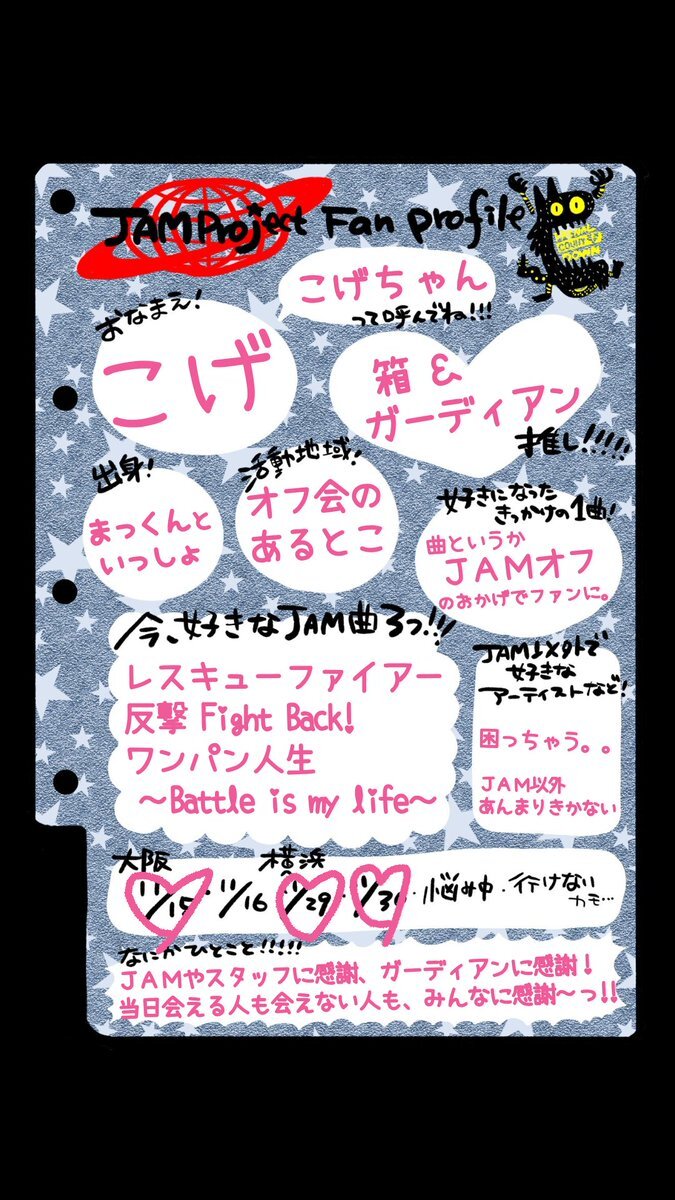 JAM Project Fan profile
おなまえ!
こげちゃん
って呼んでね!!!
こげ
箱 &
ガーディアン
推し!!!!!
出身!
まっくんと
いっしょ
活動地域!
オフ会の
あるとこ
好きになった
きっかけの1曲!
曲というか
JAMオフ
のおかげでファンに。
今、好きなJAM曲3つ!!!
レスキューファイアー
反撃 Fight Back!
ワンパン人生
～Battle is my life～
JAM以外で
好きな
アーティストなど!
困っちゃう。。
JAM以外
あんまりきかない
大阪 横浜
11/15・11/16・11/29・11/30・悩み中・行けない
カモ…
なにかひとこと!!!!!
JAMやスタッフに感謝、ガーディアンに感謝！
当日会える人も会えない人も、みんなに感謝～っ!!